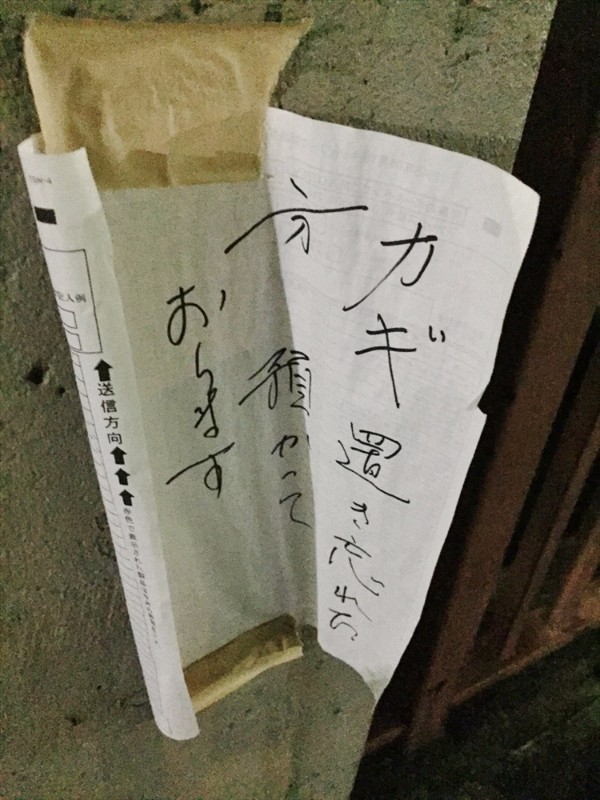 カギ置き忘れた
方
預かって
おります
記入例
送信方向